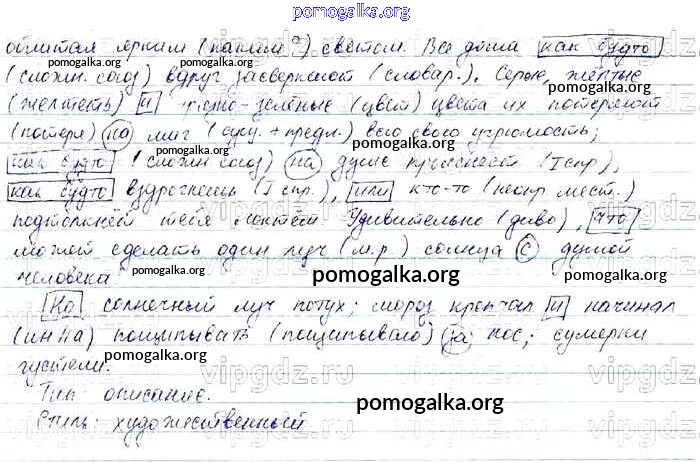 pomogalka.org
облитая ярким (каким?) светом. Все дома как будто
(сложн. союз) вдруг засверкают (словар.). Серые, жёлтые
(желтеть) и грязно-зелёные (цвет) цвета их потеряют
(потеря) на миг (сущ. + предл.) всю свою угрюмость;
как будто (сложн союз) на душе прояснеет (I спр),
как будто вздрогнешь (I спр.), или кто-то (неопр. мест.)
подтолкнёт тебя локтем Удивительно (диво), что
может сделать один луч (м.р) солнца с душой
человека
Но солнечный луч потух; мороз крепчал и начинал
(им//а) пощипывать (пощипывало) за нос; сумерки
густели.
Тип: описание.
Стиль: художественный
pomogalka.org
pomogalka.org
pomogalka.org
pomogalka.org
pomogalka.org
pomogalka.org
pomogalka.org
pomogalka.org
pomogalka.org
vipgdz.ru